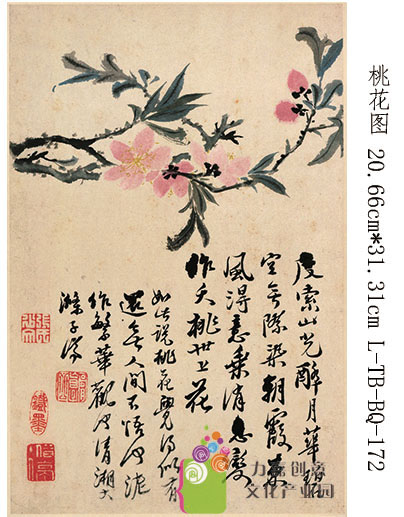 度索山光醉月華碧
空無際染朝霞東
風得意乘消息變
作夭桃世上花
如此說桃花覺得似有
還無人間不悟何泥
作繁華觀也清湘大
滌子濟
桃花图 20.66cm*31.31cm L-TB-BQ-172
力嘉创意
文化产业园